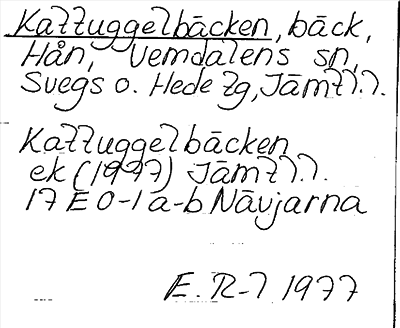 Kattuggelbäcken, bäck,
Hån, Vemdalens sn,
Svegs o. Hede tg, Jämtl.l.
Kattuggelbäcken
ek (1977) Jämtl.l.
17 E 0-1 a-b Nävjarna
E. R-l 1977